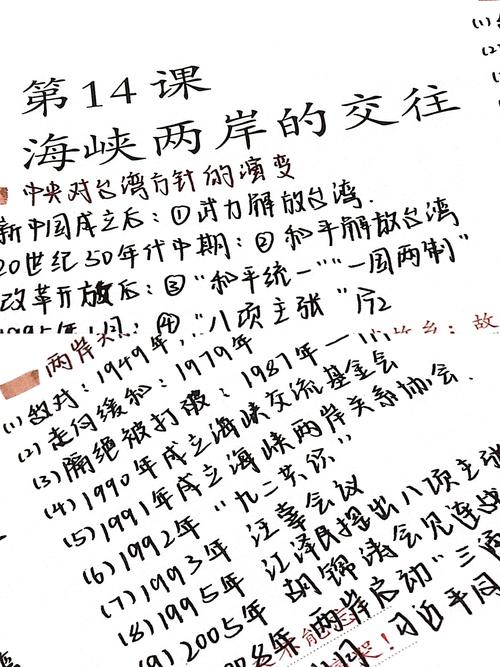 第14课
海峡两岸的交往
中央对台湾方针的演变
新中国成立后：①武力解放台湾.
20世纪50年代中期：②和平解放台湾
改革开放后：③“和平统一”“一国两制”
1995年1月：④“八项主张”
两岸
(1)敌对：1949年，
(2)走向缓和：1979年
(3)隔绝被打破：1987年
(4)1990年成立海峡交流基金会
(5)1991年成立海峡两岸关系协会.
(6)1992年“九二共识”
(7)1993年 汪辜会议
(8)1995年 江泽民提出八项主张
(9)2005年 胡锦涛会见连战
年 两岸启动“三通
习近平同